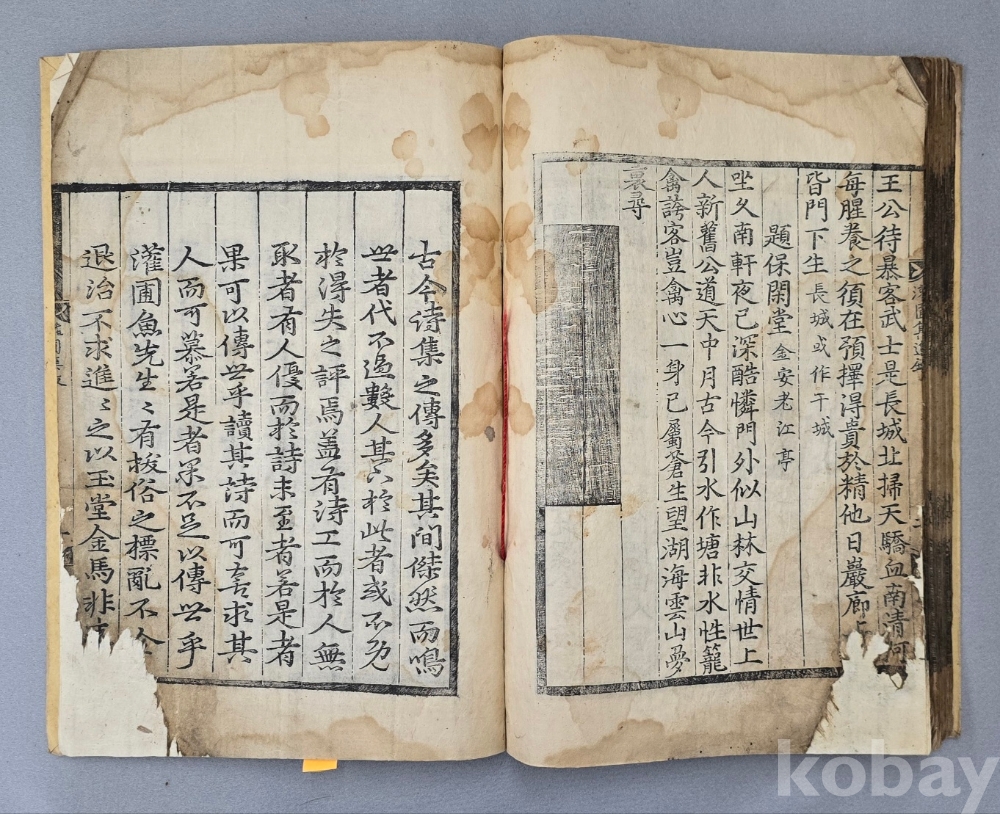 王公待暴客武士是長城北掃天驕血南清河
每腥養之須在預擇得貴於精他日巖廊上
皆門下生長城或作干城
題保閑堂金安老江亭
坐久南軒夜已深酷憐門外似山林交情世上
人新舊公道天中月古今引水作塘非水性籠
禽誇客豈禽心一身已屬蒼生望湖海雲山夢
裏尋
古今詩集之傳多矣其間傑然而鳴
世者代不過數人其下於此者或不免
於得失之評焉盖有詩工而於人無
取者有人優而於詩未至者若是者
果可以傳世乎讀其詩而可言求其
人而可慕若是者果不足以傳世乎
灌圃魚先生〻有拔俗之標亂不
退治不求進〻之以玉堂金馬非
kobay